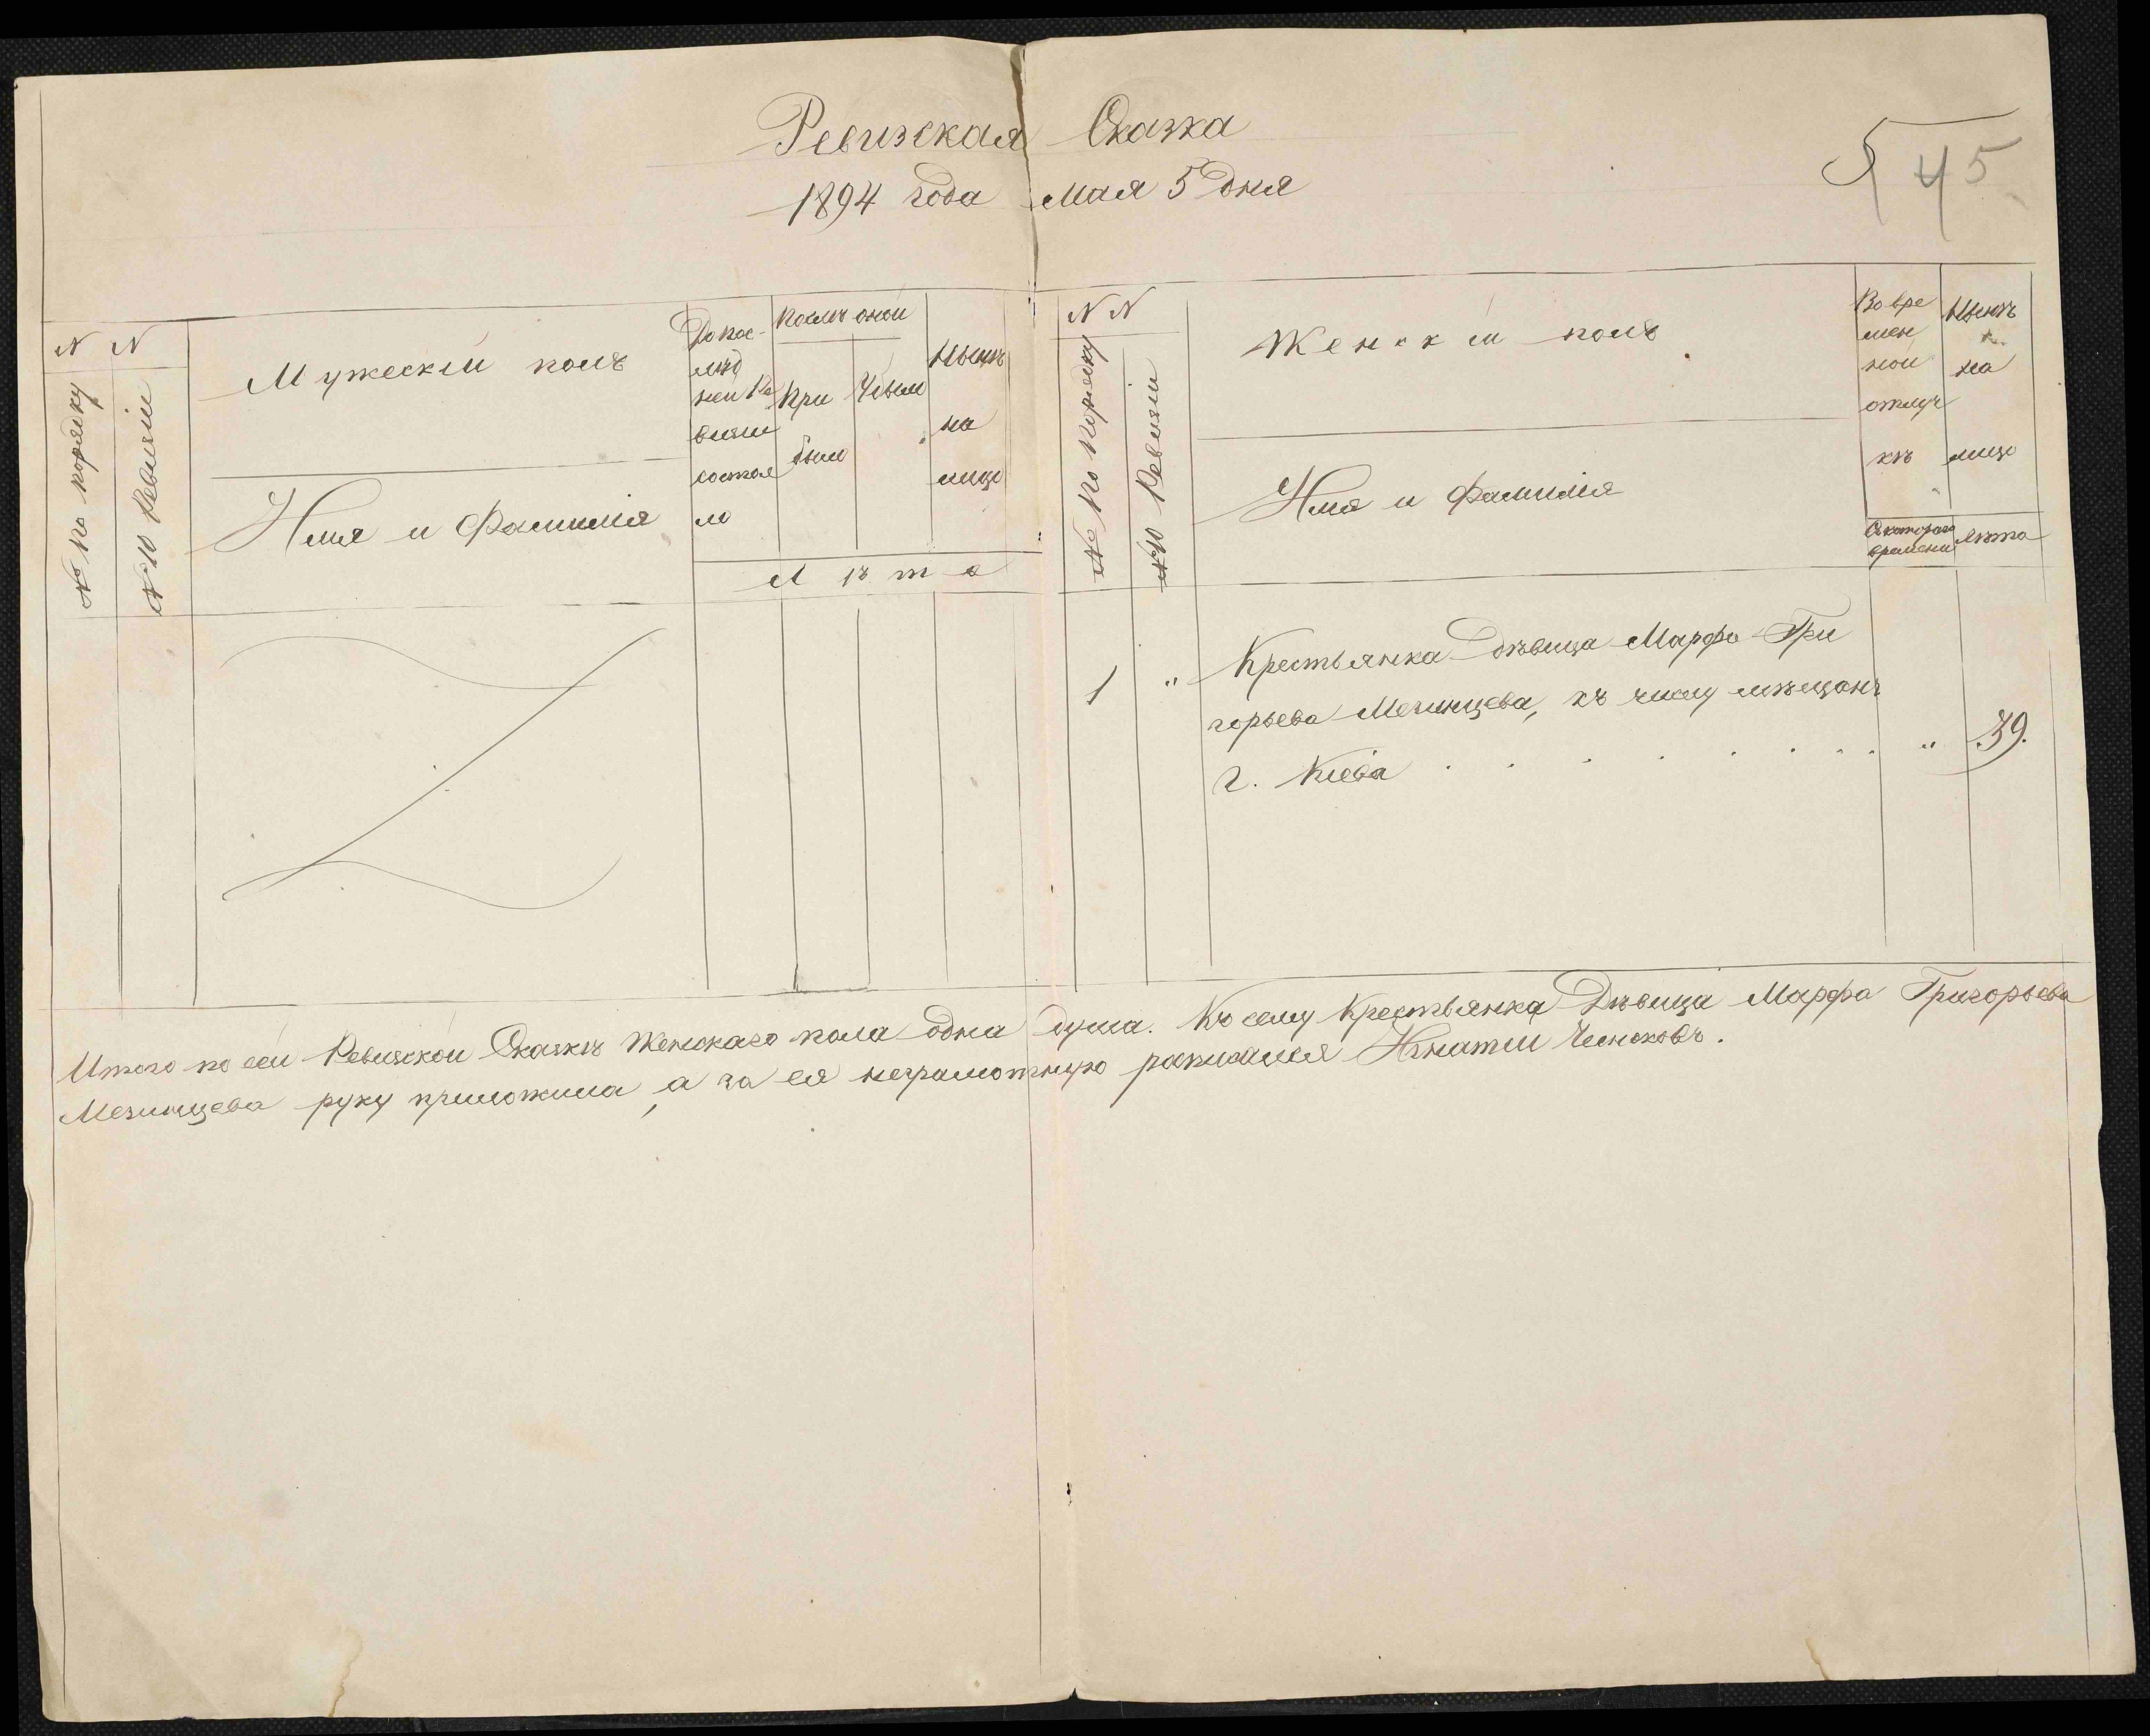 Ревизская Сказка
1894 года мая 5 дня
5 45
N N
№ по порядку
№ 10 Ревизіи
Мужескій полъ
Имя и Фамилія
До пос-
лѣд
ней Ре
визіи
состоя
ло
Послѣ оной
При
было
Убыло
Нынѣ
на
лицо
Лѣта
N N
№ По порядку
№ 10 Ревизіи
Женскій полъ
Имя и Фамилія
Во вре
мен
ной
отлуч
кѣ
Съ котораго
времени
Нынѣ
на
лицо
Лѣта
1 " Крестьянка дѣвица Марфа Гри
горьева Мезинцева, къ числу мѣщанъ
г. Кіева . . . . . . . . " 39.
Итого по сей Ревизской Сказкѣ женскаго пола одна душа. Къ сему Крестьянка Дѣвица Марфа Григорьева
Мезинцева руку приложила, а за ея неграмотную росписался Игнатій